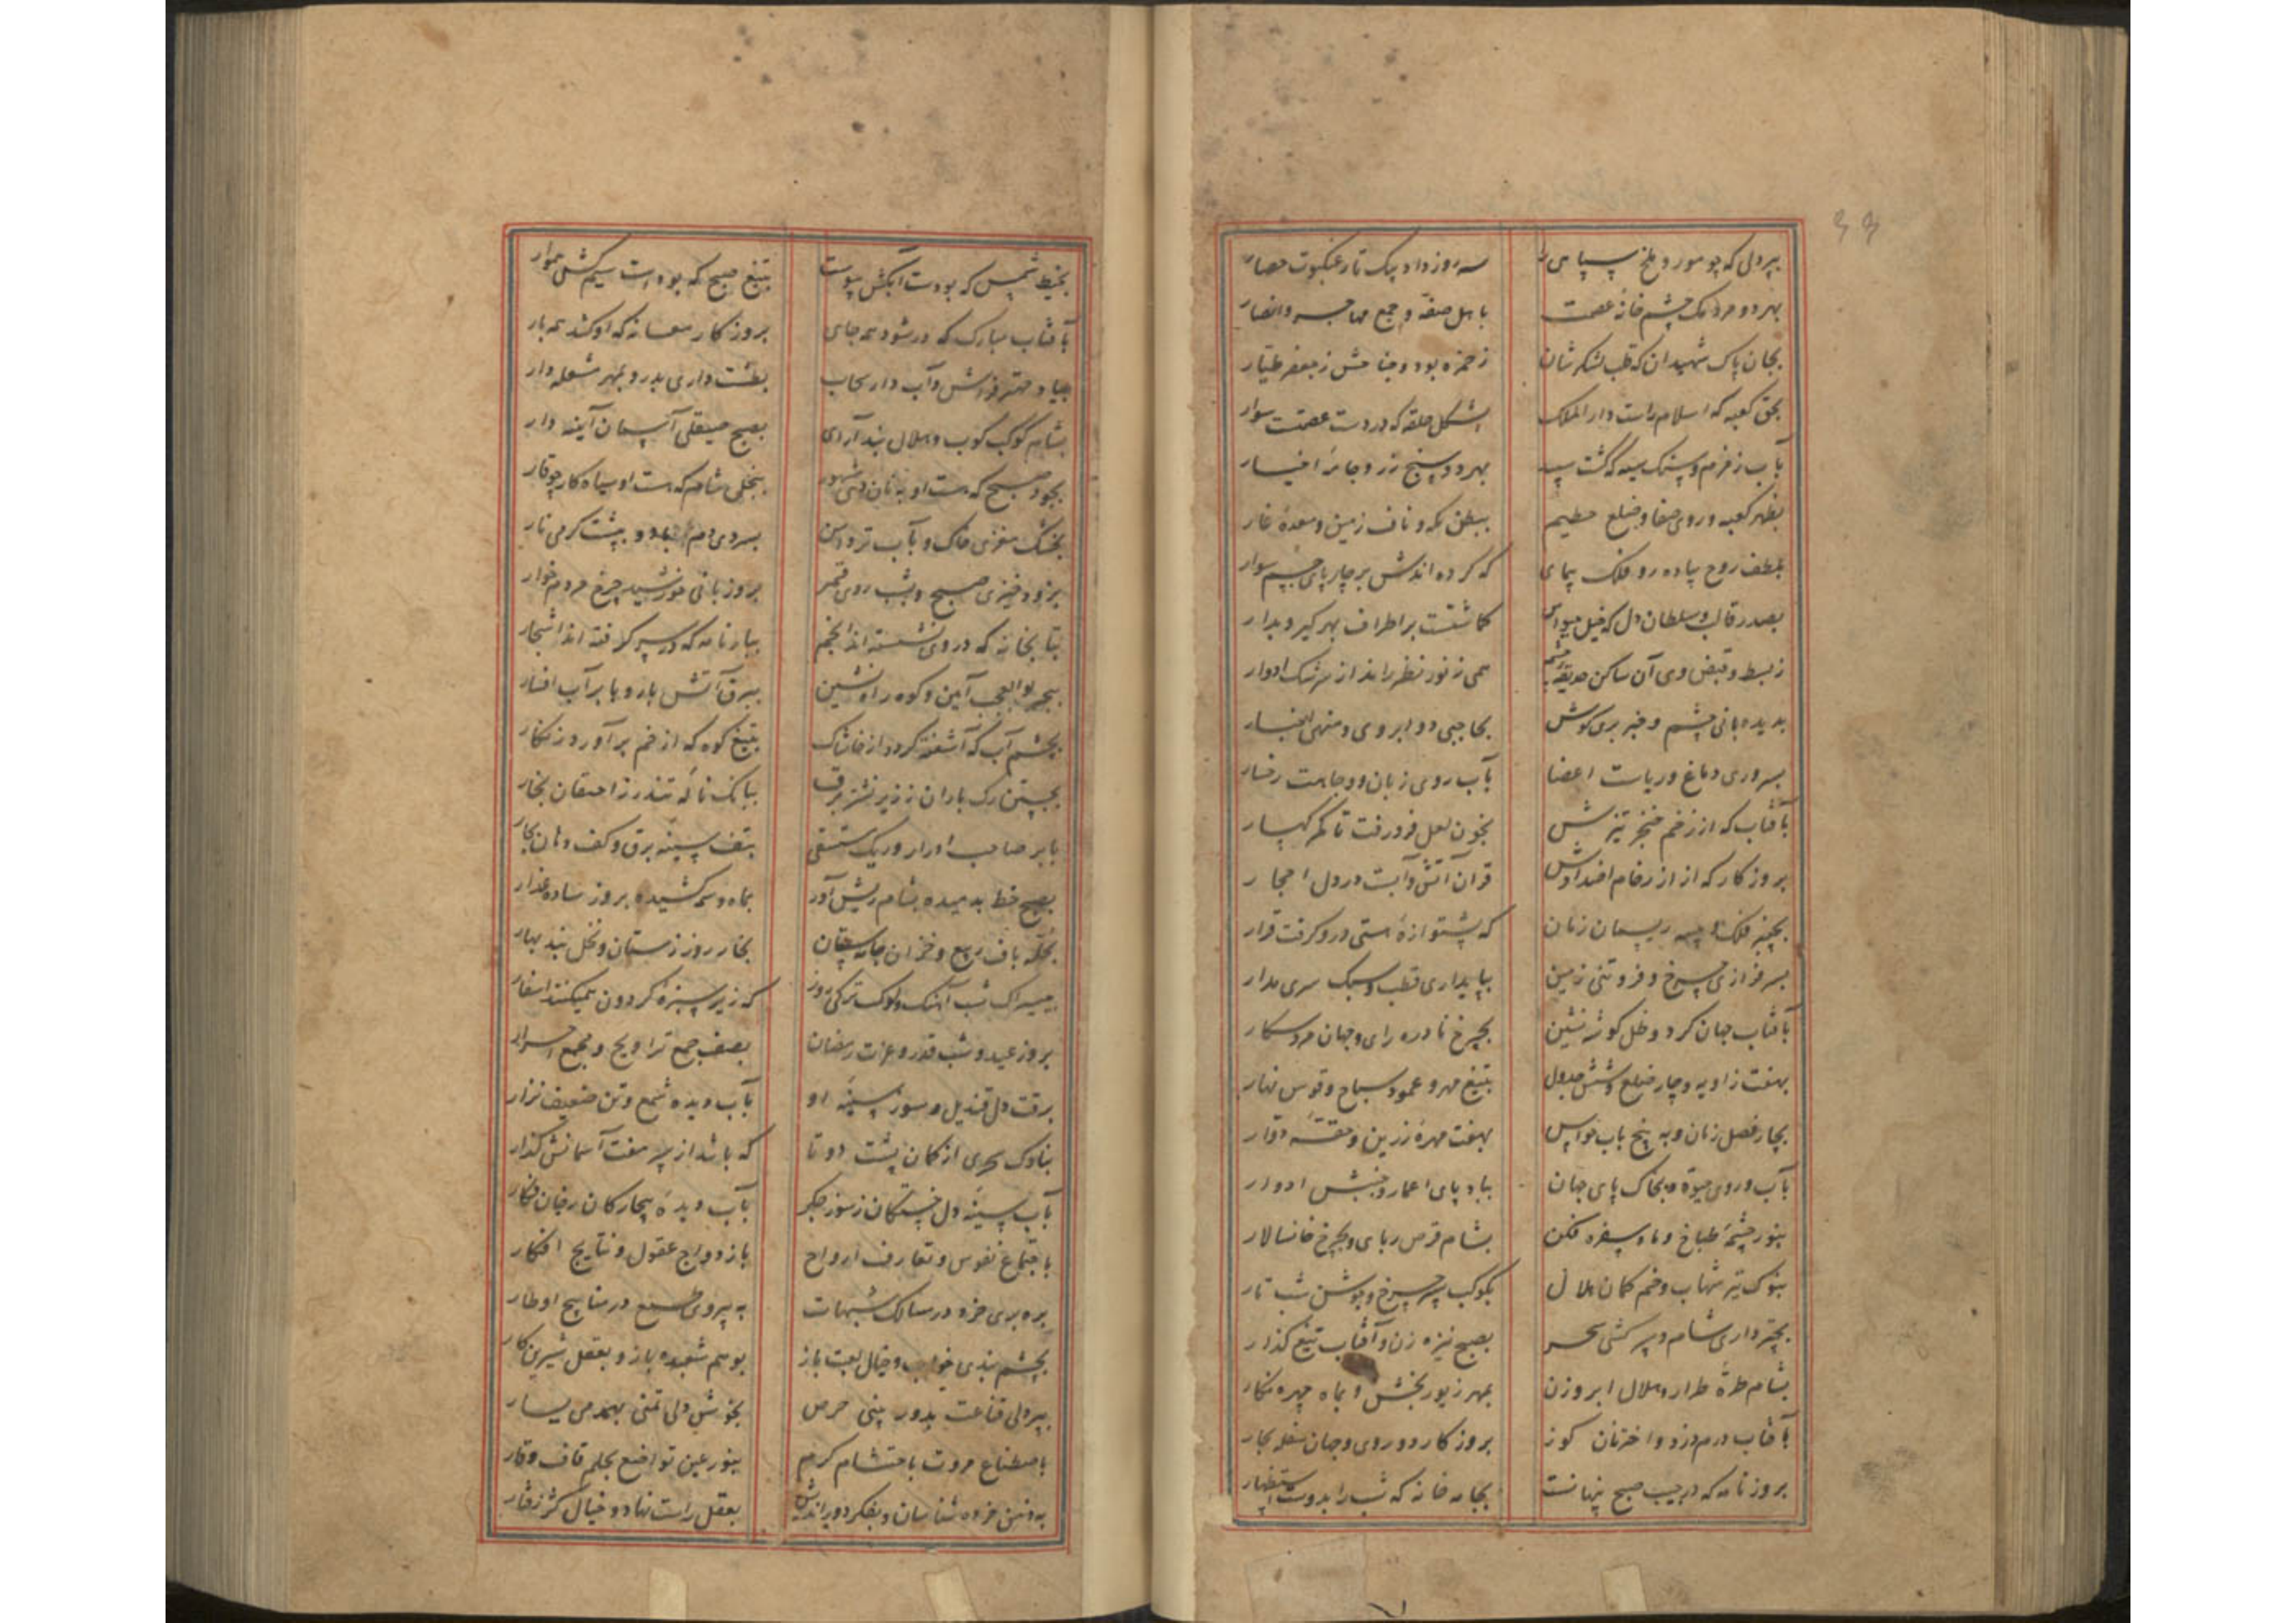 بپردلی که چو مور و ملخ سپاهی را سه روز داد بیک تار عنکبوت حصار
بهر دو مردمک چشم خانه عصمت باهل صفه و جمع مهاجر و انصار
بجان پاک شهیدان که قلب لشکرشان ز حمزه بود و جناحش ز جعفر طیار
بحق کعبه که اسلام راست دار الملک بشکل حلقه که در دست عصمت سوار
بآب زمزم و سنگ سیه که گشت سپید بهر دو سنج زر و جامه اخیار
بظهر کعبه و روی صفا و ضلع حطیم ببطن مکه و ناف زمین و معده غار
بلطف روح پیاده رو فلک پیمای که کرده اندش بر چارپای جسم سوار
بصدر قالب و سلطان دل که خیل حواس کماشتست بر اطراف بهر گیر و بدار
ز بسط و قبض وی آن ساکن حدیقه چشم همی ز نور نظر راند از سرشک ادوار
بدیده بانی چشم و خبر بری گوش بحاجبی دو ابروی و منهی اخبار
بسروری دماغ و ریاست اعضا بآب روی زبان و وجاهت رخسار
بآفتاب که از زخم خنجر تیزش بخون لعل فرو رفت تا کمر کهسار
بروزگار که از ازرخام افتداوش قران آتش و آبست در دل احجار
بچنبر فلک و ریسمان زمان که پشتوازه هستی درو گرفت قرار
بسرفرازی چرخ و فروتنی زمین بپایداری قطب و سبک سری مدار
بآفتاب جهان گرد و ظل گوشه نشین بچرخ نادره رای و جهان مردسکار
بهفت زاویه و چار ضلع و شش جدول بتیغ مهر و عمود صباح و قوس نهار
بچار فصل زمان و به پنج باب حواس بهفت مهره زرین و حقه دوار
بآب و روی حیوة و بخاک پای جهان بباد پای اعمار و جنبش ادوار
بنور چشمه طباخ و ماه سفره فکن بشام قرص ربای و بچرخ خانسالار
بنوک تیر شهاب و خم کمان هلال بکوکب سپر چرخ و جوشن شب تار
بچتر داری شام و سپر کشی سحر بصبح نیزه زن و آفتاب تیغ گذار
بشام طره طرار و هلال ابرو زن بمهر زیور بخش و بماه چهره نگار
بآفتاب درم دزد و اختران کوز بروزگار دو روی و جهان سفله بکار
بروزنامه که در جیب صبح پنهانست بجامه خانه که شب را بدوست استظهار
بخیط شمس که بودست آبگش پیوست بتیغ صبح که بودست سیم کش هموار
بآفتاب مبارک که در شود همه جای بروزگار معسانه که او کشد همه بار
بباد مهتر فراش و آب دار سحاب بطشت داری بدر و بمهر شعله دار
بشام کوکب کوب و هلال بند آرای بصبح صیقلی آسمان آینه دار
بجود صبح که هست او به نان دهی مشهور ببخل شام که هست او سیاه کار چو قار
بخشک مغزی خاک و بآب تر دامن بسردی دم باد و بپشت گرمی نار
بزود خیزی صبح و بشب روی قمر بروزبانی خورشید چرخ مردم خوار
بتابخانه که در وی نشسته اند انجم ببارنامه که در سر گرفته اند اشجار
ببحر بوالعجب آیین و کوه راه نشین ببرق آتش بار و بابر آب افشار
بچشم آب که آشفته گردد از خاشاک بتیغ کوه که از خم برآورد زنگار
بجستن رگ باران ز زیر نشتر برق ببانگ ناله تندر ز احتقان بخار
بابر صاحب ادرار و ریگ مستسقی بتف سینه برق و کف دهان بحار
بصبح خط بدمیده بشام ریش آور بماه وسمه کشیده بروز ساده عذار
بحله باف ربیع و خزان جامه ستان بخار روز زمستان و نخل بند بهار
شب آهنگ روز که زیر سبزه گردون همیکنند اسفار
بروز عید و شب قدر و عزت رمضان بصف جمع تراویح و مجمع اسرار
برقت دل قندیل و سوز سینه او بآب دیده شمع و تن ضعیف نزار
بناوک سحری از کمان پشت دو تا که باشد از سپر هفت آسمانش گذار
بآب سینه دل خستگان ز سوز جگر بآب دیده بیچارگان رخان فگار
باجتماع نفوس و تعارف ارواح بازدواج عقول و نتایج افکار
بره بری خرد در مسالک شبهات به پیروی طمع در مناهج اوطار
بچشم بندی خواب و خیال لعبت باز بوهم شعبده باز و بعقل شیرین کار
بپردلی قناعت بدور بینی حرص بخوش دلی تمنی بهمدمی یسار
باصطناع مروت باحتشام کرم بنور عین تواضع بحلم قاف وقار
بذهن خرده شناسان و بفکر دور اندیش بعقل راست نهاد و خیال کژ رفتار